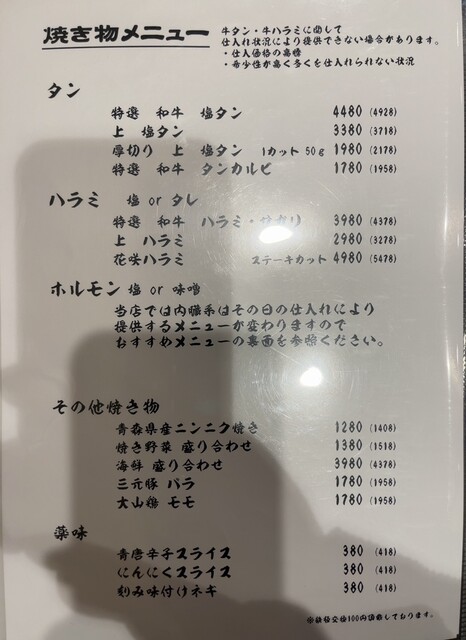 焼き物メニュー
牛タン・牛ハラミに関して
仕入れ状況により提供できない場合があります。
・仕入価格の高騰
・希少性が高く多くを仕入れられない状況
タン
特選 和牛 塩タン 4480 (4928)
上 塩タン 3380 (3718)
厚切り 上 塩タン 1カット 50g 1980 (2178)
特選 和牛 タンカルビ 1780 (1958)
ハラミ 塩 or タレ
特選 和牛 ハラミ・サガリ 3980 (4378)
上 ハラミ 2980 (3278)
花咲ハラミ ステーキカット 4980 (5478)
ホルモン 塩 or 味噌
当店では内臓系はその日の仕入れにより
提供するメニューが変わりますので
おすすめメニューの裏面を参照ください。
その他焼き物
青森県産ニンニク焼き 1280 (1408)
焼き野菜 盛り合わせ 1380 (1518)
海鮮 盛り合わせ 3980 (4378)
三元豚 バラ 1780 (1958)
大山鶏 モモ 1780 (1958)
薬味
青唐辛子スライス 380 (418)
にんにくスライス 380 (418)
刻み味付けネギ 380 (418)
※鉄板交換100円頂戴しております。